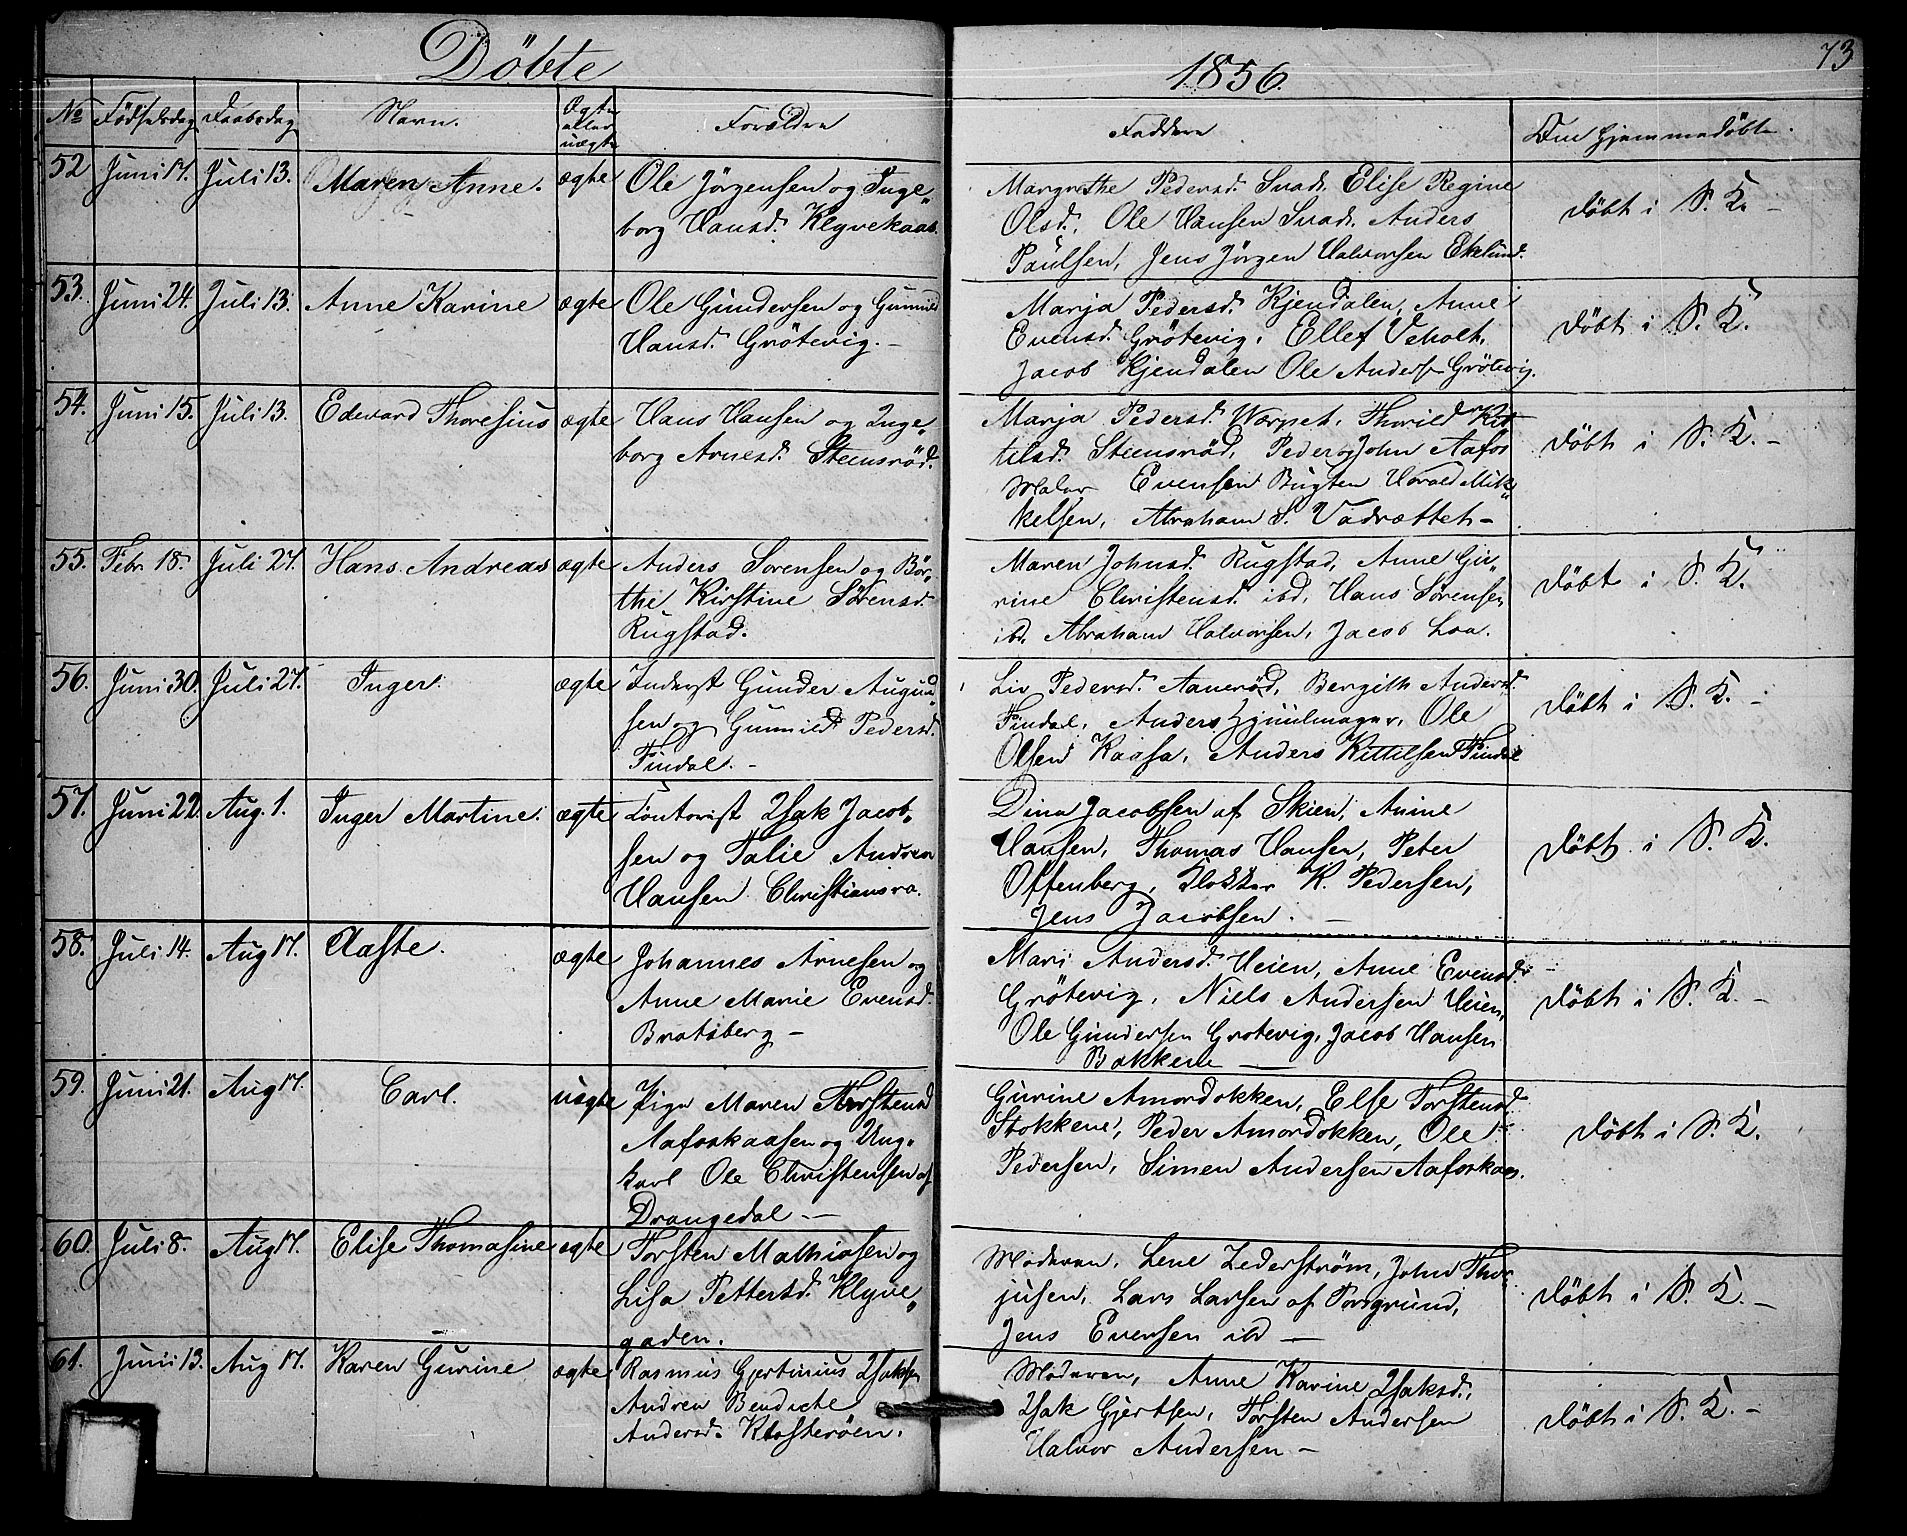 Döbte
1856.
73
No Födselsdag Daabsdag Navn. Ægte eller uægte Forældre Faddere Om hjemmedöbt.
52 Juni 17. Juli 13. Maren Anne. ægte Ole Jörgensen og Inge„
borg Hansd. Klyvekaas.
Margrethe Pedersd. Snad. Elise Regine
Olsd. Ole Hansen Snad. Anders
Paulsen, Jens Jörgen Halvorsen Ekelund.
döbt i S. K. –
53. Juni 24. Juli 13. Anne Karine ægte Ole Gundersen og Gunnild
Hansd. Grötevig. –
Marja Pedersd. Kjendalen, Anne
Evensd. Grötevig, Ellef Veholt,
Jacob Kjendalen Ole Anders Grötevig.
döbt i S. K.
54. Juni 15. Juli 13. Edevard Thoresius ægte Hans Hansen og Inge„
borg Arnesd. Steensröd.
Marja Pedersd. Worpet, Thorild Kit
tilsd. Steensröd, Peder og John Aafos
Maler Evensen Bugten Harald Mik„
kelsen, Abraham S. Vadrættet –
döbt i S. K. –
55. Febr. 18. Juli 27. Hans Andreas ægte Anders Sorensen og Bör„
the Kirstine Sörensd.
Rugstad.
Maren Johnsd. Rugstad, Anne Gu„
rine Christensd. ibd, Hans Sörensen
ibd, Abraham Halvorsen, Jacob Loa.
döbt i S. K.
56. Juni 30. Juli 27. Inger. ægte Inderst Gunder Augun„
sen og Gunnild Pedersd.
Findal. –
Liv Pedersd. Aaneröd, Bergith Andersd.
Findal, Anders Hjuulmager, Ole
Olsen Kaasa, Anders Kittilsen Findal
döbt i S. K. –
57. Juni 22. Aug. 1. Inger Martine. ægte Contorist Isak Jacob„
sen og Talie Andrea
Hansen Christiansra.
Dina Jacobsen af Skien, Anine
Hansen, Thomas Hansen, Peter
Offenberg, Klokker K. Pedersen,
Jens Jacobsen. –
döbt i S. K.
58. Juli 14. Aug 17. Aaste. ægte Johannes Arnesen og
Anne Marie Evensd.
Bratsberg –
Mari Andersd. Heien, Anne Evensd.
Grötevig, Niels Andersen Heien,
Ole Gundersen Grotevig, Jacob Hansen
Bakkene –
döbt i S. K. –
59. Juni 21. Aug 17. Carl. uægte Pige Maren Torstensd
Aafoskaasen og Ung„
karl Ole Christensen af
Drangedal –
Gurine Amordokken, Else Torstensd.
Stokkene, Peder Amordokken, Ole
Pedersen, Simen Andersen Aafoskaas.
döbt i S. K.
60. Juli 8. Aug 17. Elise Thomasine ægte Torsten Mathiasen og
Lisa Pettersd. Klyve„
gaden.
Moderen, Lene Zederström, John Thor„
jusen, Lars Larsen af Porsgrund,
Jens Evensen ibd –
döbt i S. K. –
61. Juni 13. Aug 17. Karen Gurine ægte Rasmus Gjertinius Isaksen
Andrea Bendicte
Andersd. Klosteröen.
Moderen, Anne Karine Isaksd.,
Isak Gjertsen, Torsten Andersen
Halvor Andersen –
döbt i S. K. –